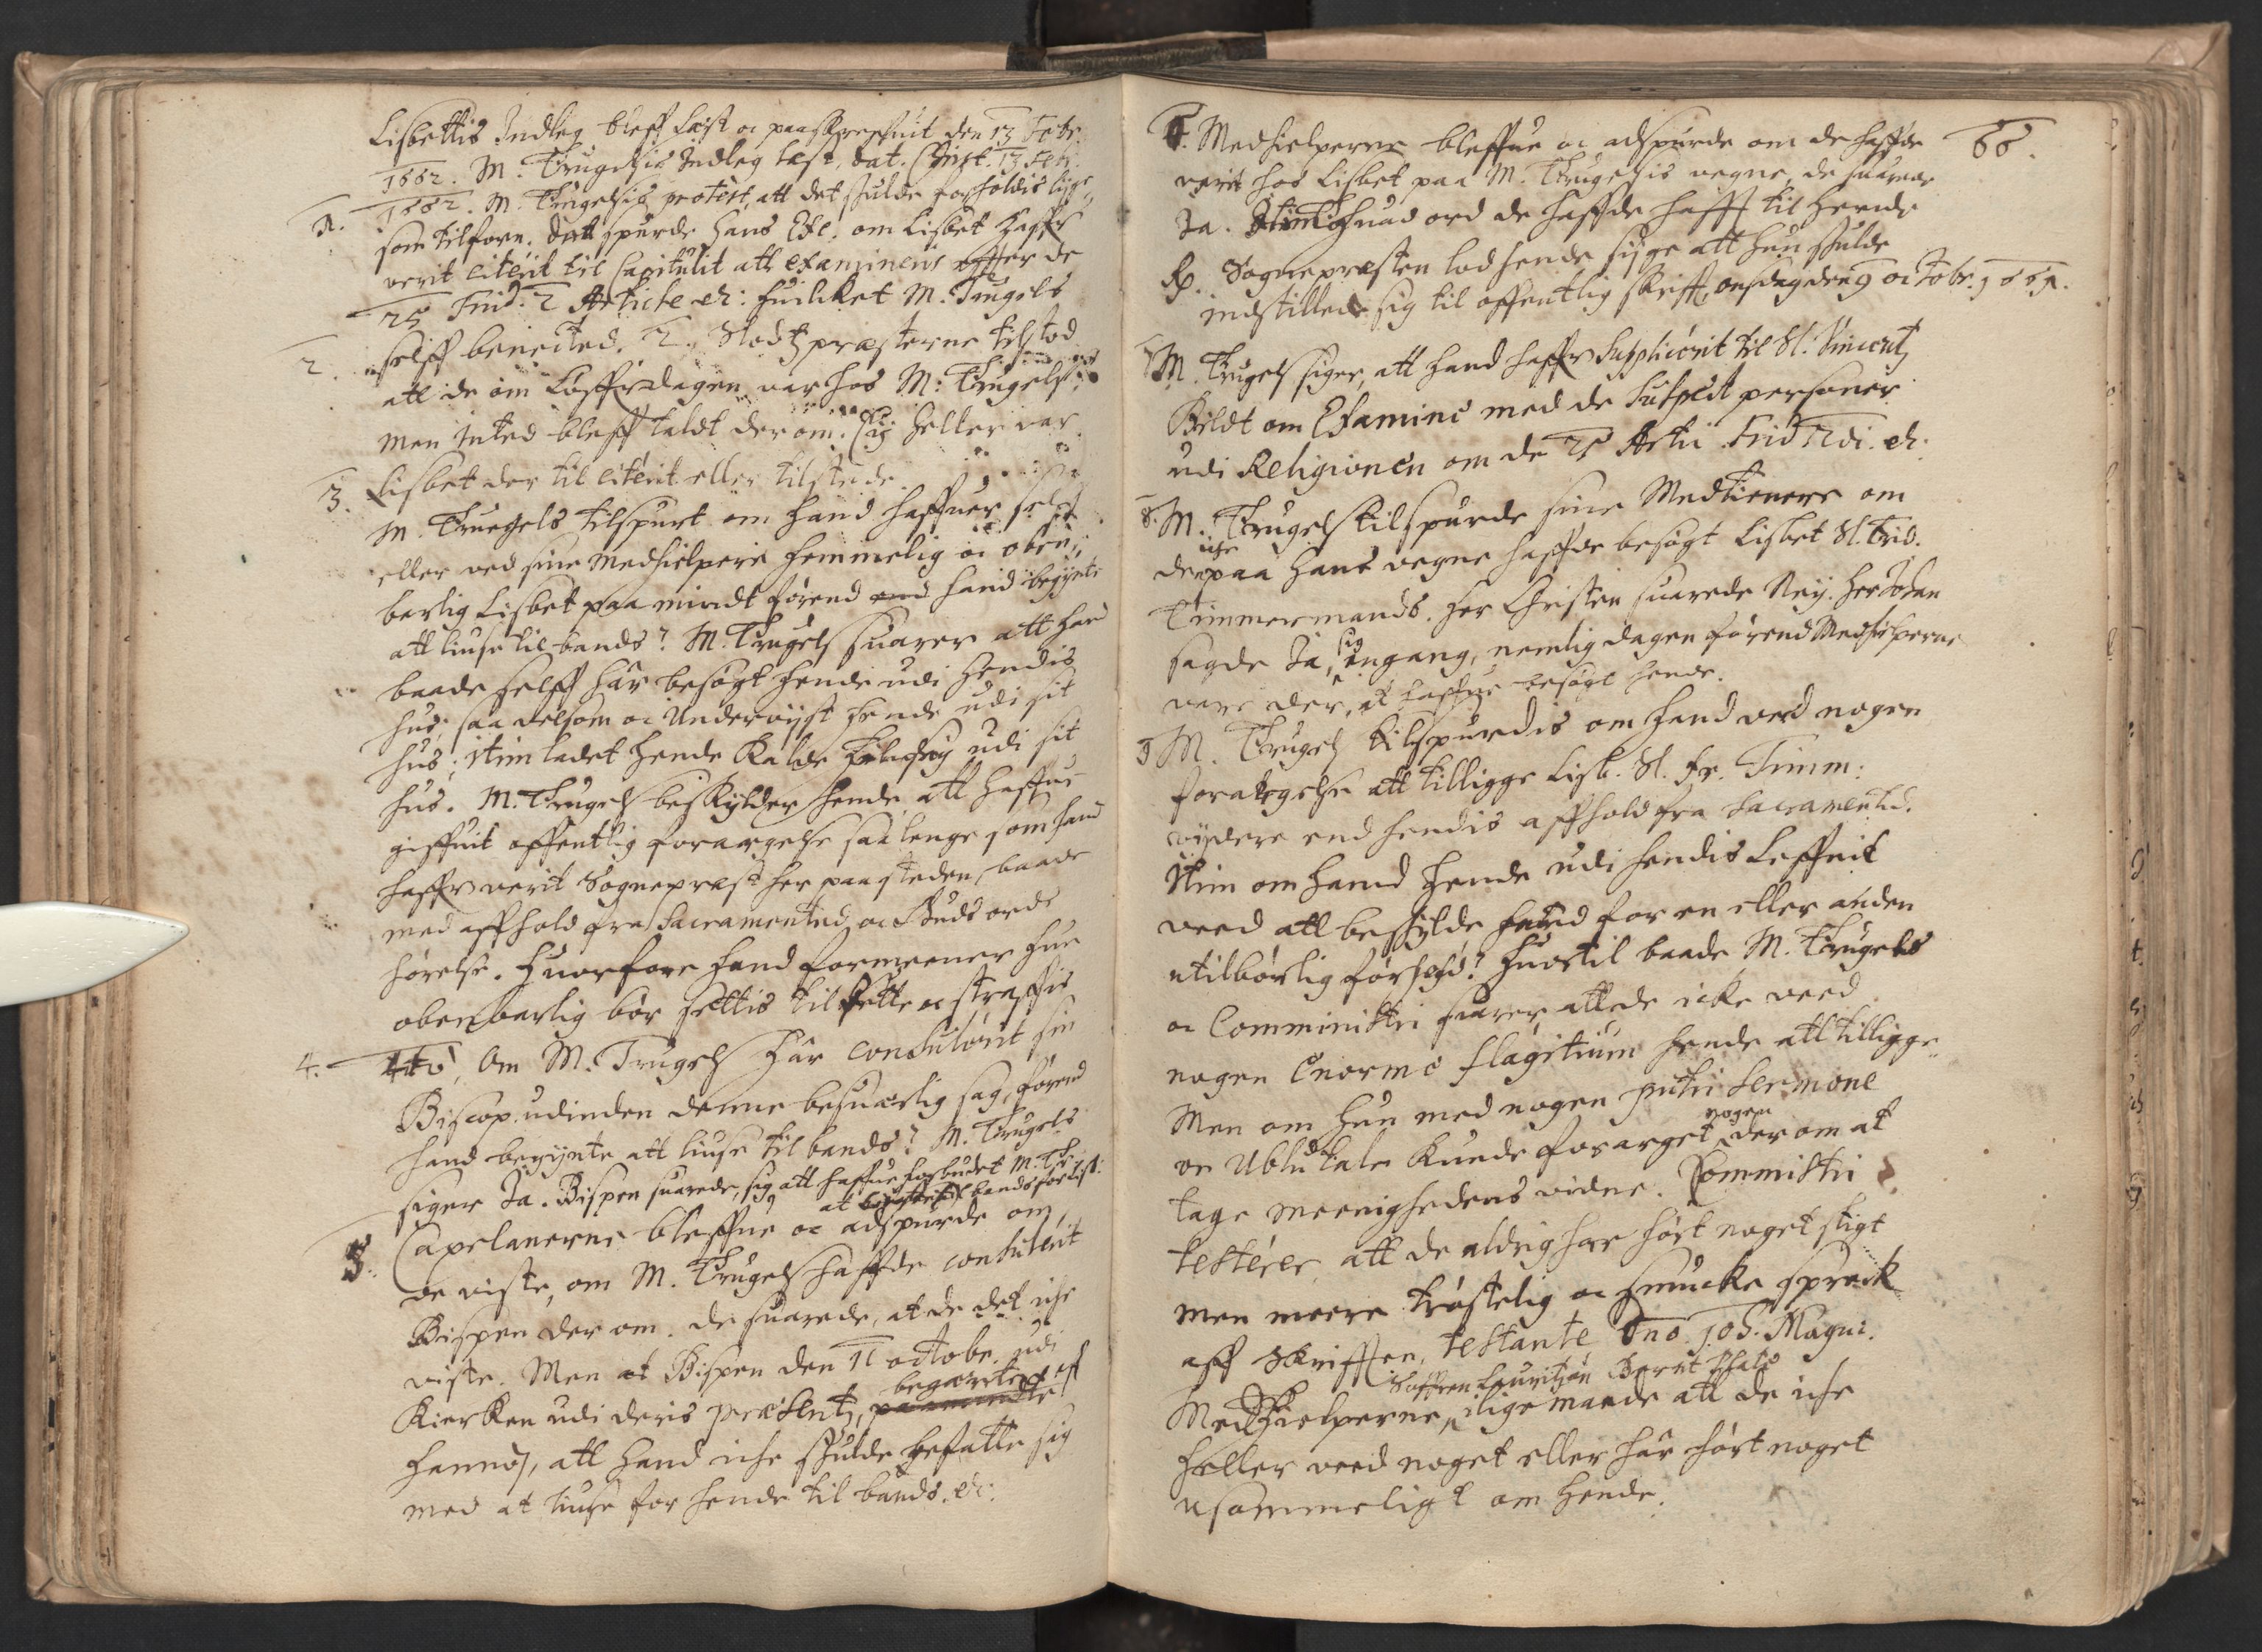 Lisbettis Indleg bleff læst oc paaskreffuit den 13 Febr.
1662. M. Trugelsis Indleg læst, dat. Christ. 13 Feb.
1. 1662. M. Trugelsis protest, att det skulde forholdis lige
som tilforn. Dett spurde Hans Exc. om Lisbet haffr
verit citerit til Capitulit att examineris effter de
25 Frid. 2 Article etc: huilket M. Trugels
2. selff benected. 2. Slodtzpræsterne tilstod
att de om Løffverdagen var hos M: Trugels,
men inted bleff taldt der om. Ey heller var
Lisbet der til citerit eller tilstede.
3. M. Truegels tilspurt om hand haffuer selff
eller ved sine Medhielpere hemmelig oc oben,,
barlig Lisbet paamindt førend hand begynte
att liuse til bands? M. Trugels suarer att hand
baade selff hår besøgt hende udi hendis
hus, saa velsom oc Underviist hende udi sit
hus; Item ladet hende kalde til sig udi sit
hus. M. Trugels beskylder hende att haffue
giffuit offentlig forargelse saa lenge som hand
haffr verit Sognepræst her paa steden, baade
med affhold fra Sacramentet oc Guds ords
hørelse. Huorfore hand formeener hun
obenbarlig bør settis til rette oc straffis
4. 4to, Om M. Trugels hår consulerit sin
Biscop udinden denne besuærlig sag, førend
hand begynte att liuse til bands? M. Trugels
siger Ja. Bispen suarede, sig att haffue forbudet M. Tr:
at liuse til bands for List:
5. Capelanerne bleffue oc adspurde om
de viste, om M. Trugels haffde consulerit
Bispen der om. de suarede, at de det iche
viste. Men at Bispen den 11 octobr. udi
Kierken udi deris præsentz, begærte af
hannom, att hand iche skulde befatte sig
med at liuse for hende til bands. etc.
66.
6. Medhielperne bleffue oc adspurde om de haffde
verit hos Lisbet paa M. Trugelsis vegne, de suarede
Ja. Item huad ord de haffde hafft til hende
Rp. Sognepræsten lod hende sige att hun skulde
indstille sig til offentlig skrifft, onsdag den 9 octobr. 1661.
7 M. Trugels siger, att hand haffr supplicerit til Sl: Vincentz
Bildt om Examine med de suspect personer
udi Religionen om de 25 Artic. Frid 2di. etc:
8. M. Trugels tilspurde sine Medtienere om
de iche paa hans vegne haffde besøgt Lisbet Sl. Frid.
Timmermands. Her Christen suarede Ney. Her Johan
sagde Ja, sig engang, nemlig dagen førend Medhielperne
vare der, at haffue besøgt hende.
9 M. Trugels tilspurdis om hand veed nogen
forargelse att tillegge Lisb. Sl. Fr. Timm:
viidere end hendis affhold fra Sacramentid.
Item om hand hende udi hendis Leffnit
veed att beskylde for en eller anden
utilbørlig forhold? huortil baade M. Trugels
oc Comministri suarer att de icke veed
nogen Enorme flagitium hende att tillegge
Men om hun med nogen putri sermone
oc Ublu tale kunde forarget nogen der om at
tage meenighedens vidne. Commistri
testerer, att de aldrig har hørt noget sligt
men meere trøstelig oc smucke sprock
aff Skrifften, testante Dno. Joh. Magni.
Søffren Lauritzøn Berent
Medhielperne, ligemaade att de iche
heller veed noget eller hår hørt noget
usømmeligt om hende.